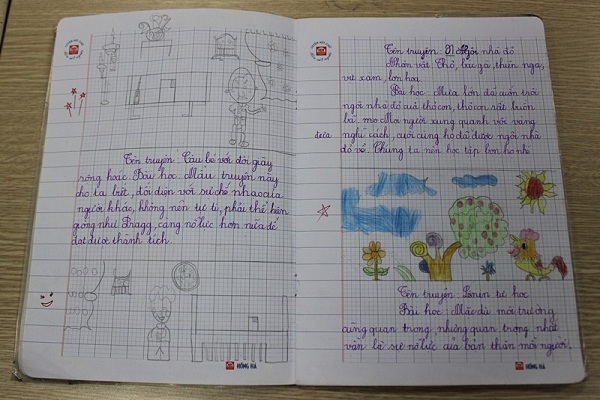 Tên truyện: Cậu bé với đôi giày
rộng hoác Bài học Mẩu truyện này
cho ta biết, đối diện với sự chế nhạo của
người khác, không nên tự ti, phấn
giống như Bragg, càng nỗ lực hơn nữa để
đạt được thành tích.
HỒNG HÀ
Tên truyện: Ngôi nhà đỏ
Nhân vật Thỏ, bác gà, thiên nga,
vịt xám, lợn hoa
Bài học Mưa lớn đã cuốn trôi
ngôi nhà đỏ của thỏ con, thỏ con rất buồn
bã, mọi người xung quanh vội vàng
nghĩ cách, cuối cùng họ đã được ngôi nhà
đỏ về. Chúng ta nên học tập lợn
Tên truyện Lênin tự học
Bài học Mặc dù môi trường
cũng quan trọng, nhưng quan trọng nhất
vẫn là sự nỗ lực của bản thân mỗi người.
HỒNG HÀ